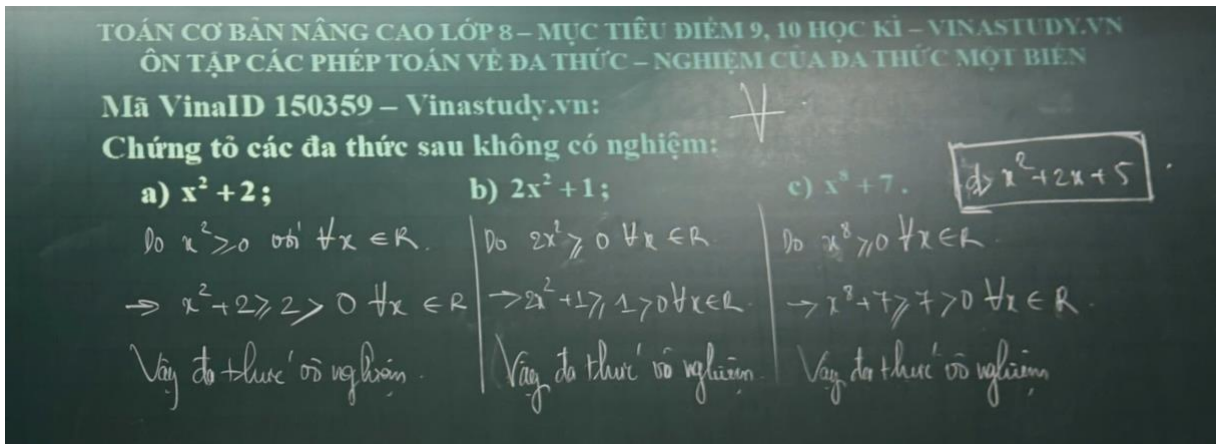 TOÁN CƠ BẢN NÂNG CAO LỚP 8 – MỤC TIÊU ĐIỂM 9, 10 HỌC KÌ – VINASTUDY.VN
ÔN TẬP CÁC PHÉP TOÁN VỀ ĐA THỨC – NGHIỆM CỦA ĐA THỨC MỘT BIẾN
Mã VinaID 150359 – Vinastudy.vn:
∀
Chứng tỏ các đa thức sau không có nghiệm:
a) x² + 2; b) 2x² + 1; c) x⁸ + 7. d) x² + 2x + 5
Do x² ⩾ 0 với ∀x ∈ R.
→ x² + 2 ⩾ 2 > 0 ∀x ∈ R
Vậy đa thức vô nghiệm.
Do 2x² ⩾ 0 ∀x ∈ R
→ 2x² + 1 ⩾ 1 > 0 ∀x ∈ R.
Vậy đa thức vô nghiệm.
Do x⁸ ⩾ 0 ∀x ∈ R.
→ x⁸ + 7 ⩾ 7 > 0 ∀x ∈ R.
Vậy đa thức vô nghiệm